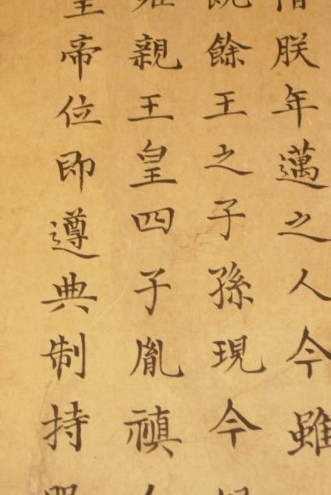 朕年邁之人今雖
餘王之子孫現今
親王皇四子胤禛
皇帝位即遵典制持